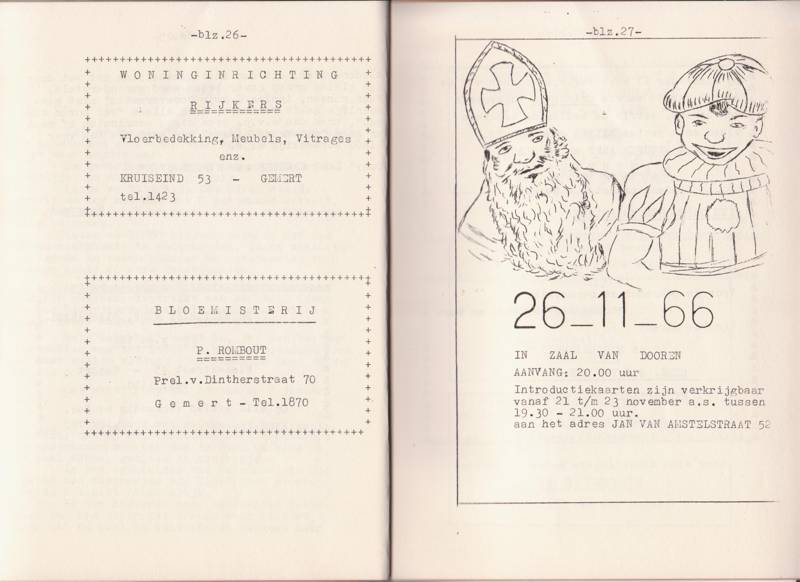 -blz.26-
WONINGINRICHTING
RIJKERS
Vloerbedekking, Meubels, Vitrages
enz.
KRUISEIND 53 - GEMERT
tel.1423
BLOEMISTERIJ
P. ROMBOUT
Prel.v.Dintherstraat 70
Gemert - Tel.1870
-blz.27-
26_11_66
IN ZAAL VAN DOOREN
AANVANG: 20.00 uur
Introductiekaarten zijn verkrijgbaar
vanaf 21 t/m 23 november a.s. tussen
19.30 - 21.00 uur.
aan het adres JAN VAN AMSTELSTRAAT 52